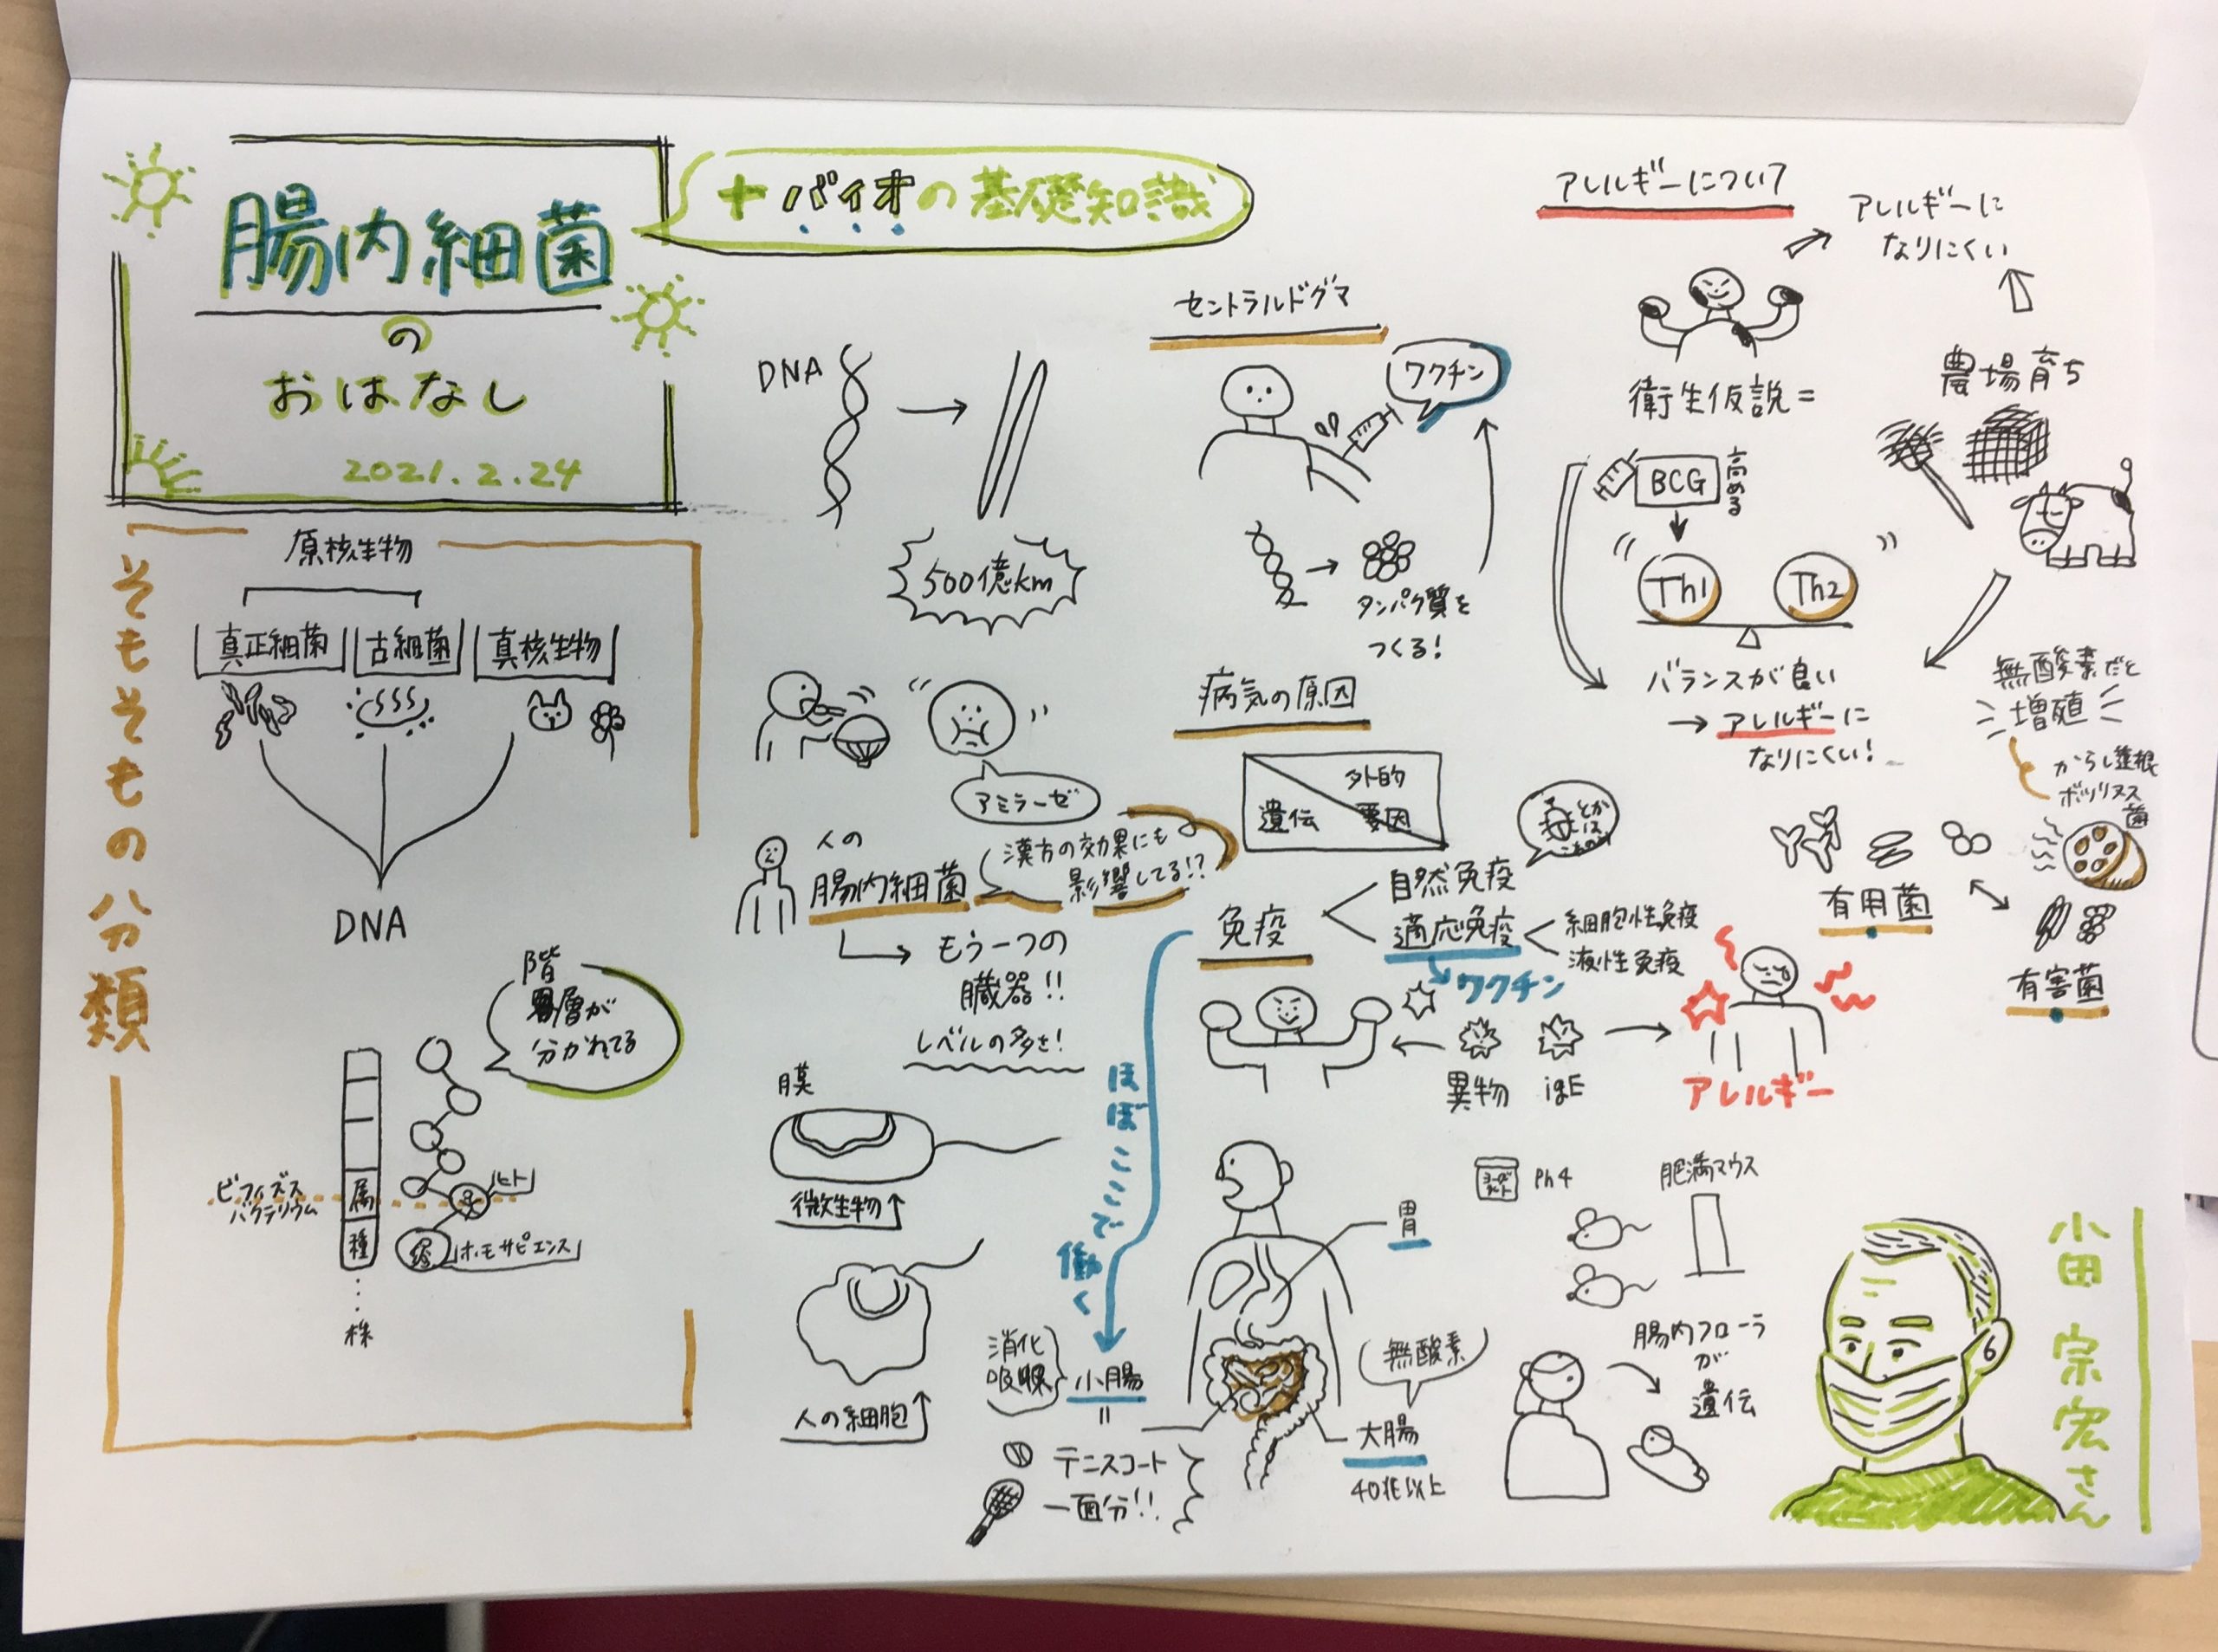 腸内細菌
の
おはなし
2021.2.24
+バイオの基礎知識
そもそもの分類
原核生物
真正細菌
古細菌
真核生物
DNA
階
層が
分かれてる
ビフィズス
バクテリウム
属
種
株
ヒト
ホモサピエンス
DNA
500億km
アミラーゼ
人の
腸内細菌
漢方の効果にも
影響してる!?
もう一つの
臓器!!
レベルの多さ!
膜
微生物
人の細胞
セントラルドグマ
ワクチン
タンパク質を
つくる!
病気の原因
遺伝
外的
要因
免疫
自然免疫
適応免疫
細胞性免疫
液性免疫
ワクチン
異物
igE
アレルギー
ほぼここで
働く
消化
吸収
小腸
=
テニスコート
一面分!!
胃
無酸素
大腸
40兆以上
アレルギーについて
アレルギーに
なりにくい
衛生仮説=
農場育ち
BCG
高める
Th1
Th2
バランスが良い
→アレルギーに
なりにくい!
無酸素だと
増殖
からし蓮根
ボツリヌス
菌
有用菌
有害菌
ヨーグルト
Ph4
肥満マウス
腸内フローラ
が
遺伝
小田 宗宏さん